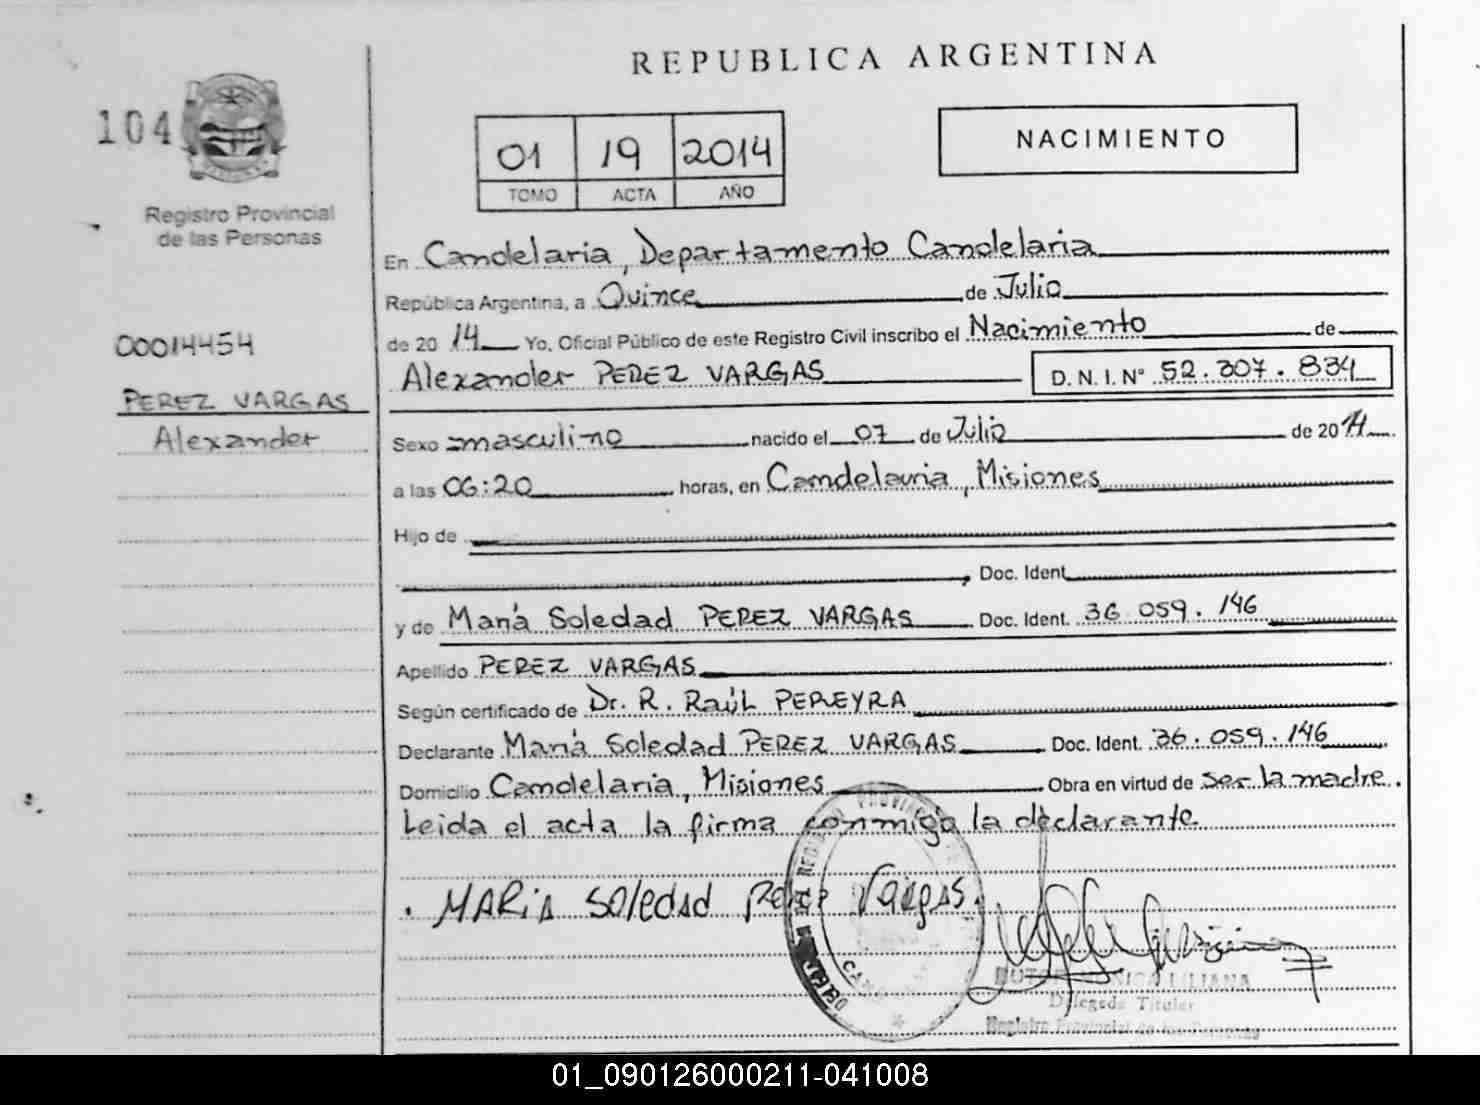 REPUBLICA ARGENTINA
104
Registro Provincial
de las Personas
01 19 2014
TOMO ACTA AÑO
NACIMIENTO
00014454
PEREZ VARGAS
Alexander
En Candelaria, Departamento Candelaria
República Argentina, a Quince de Julio
de 20 14 Yo, Oficial Público de este Registro Civil inscribo el Nacimiento de
Alexander PEREZ VARGAS D. N. I. N° 52.307.834
Sexo masculino nacido el 07 de Julio de 2014
a las 06:20 horas, en Candelaria, Misiones
Hijo de
Doc. Ident.
y de María Soledad PEREZ VARGAS Doc. Ident. 36.059.146
Apellido PEREZ VARGAS
Según certificado de Dr. R. Raúl PEREYRA
Declarante María Soledad PEREZ VARGAS Doc. Ident. 36.059.146
Domicilio Candelaria, Misiones Obra en virtud de ser la madre.
Leida el acta la firma conmigo la declarante
MARiA SOlEdAd PeRez VaRgas.
LILIANA
Delegada Titular
Registro Provincial de las Personas
01_090126000211-041008